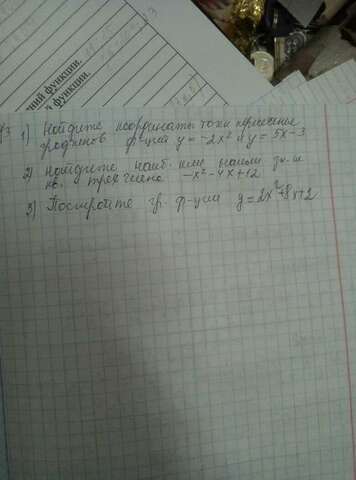 ний функции.
й функции.
№3 1) Найдите координаты точки пересечение
графиков ф-ций y = -2x² и y = 5x-3
2) Найдите наиб. или наимен. зн-и
кв. трехчлена -x²-4x+12
3) Постройте гр. ф-ции y = 2x²+8x+2